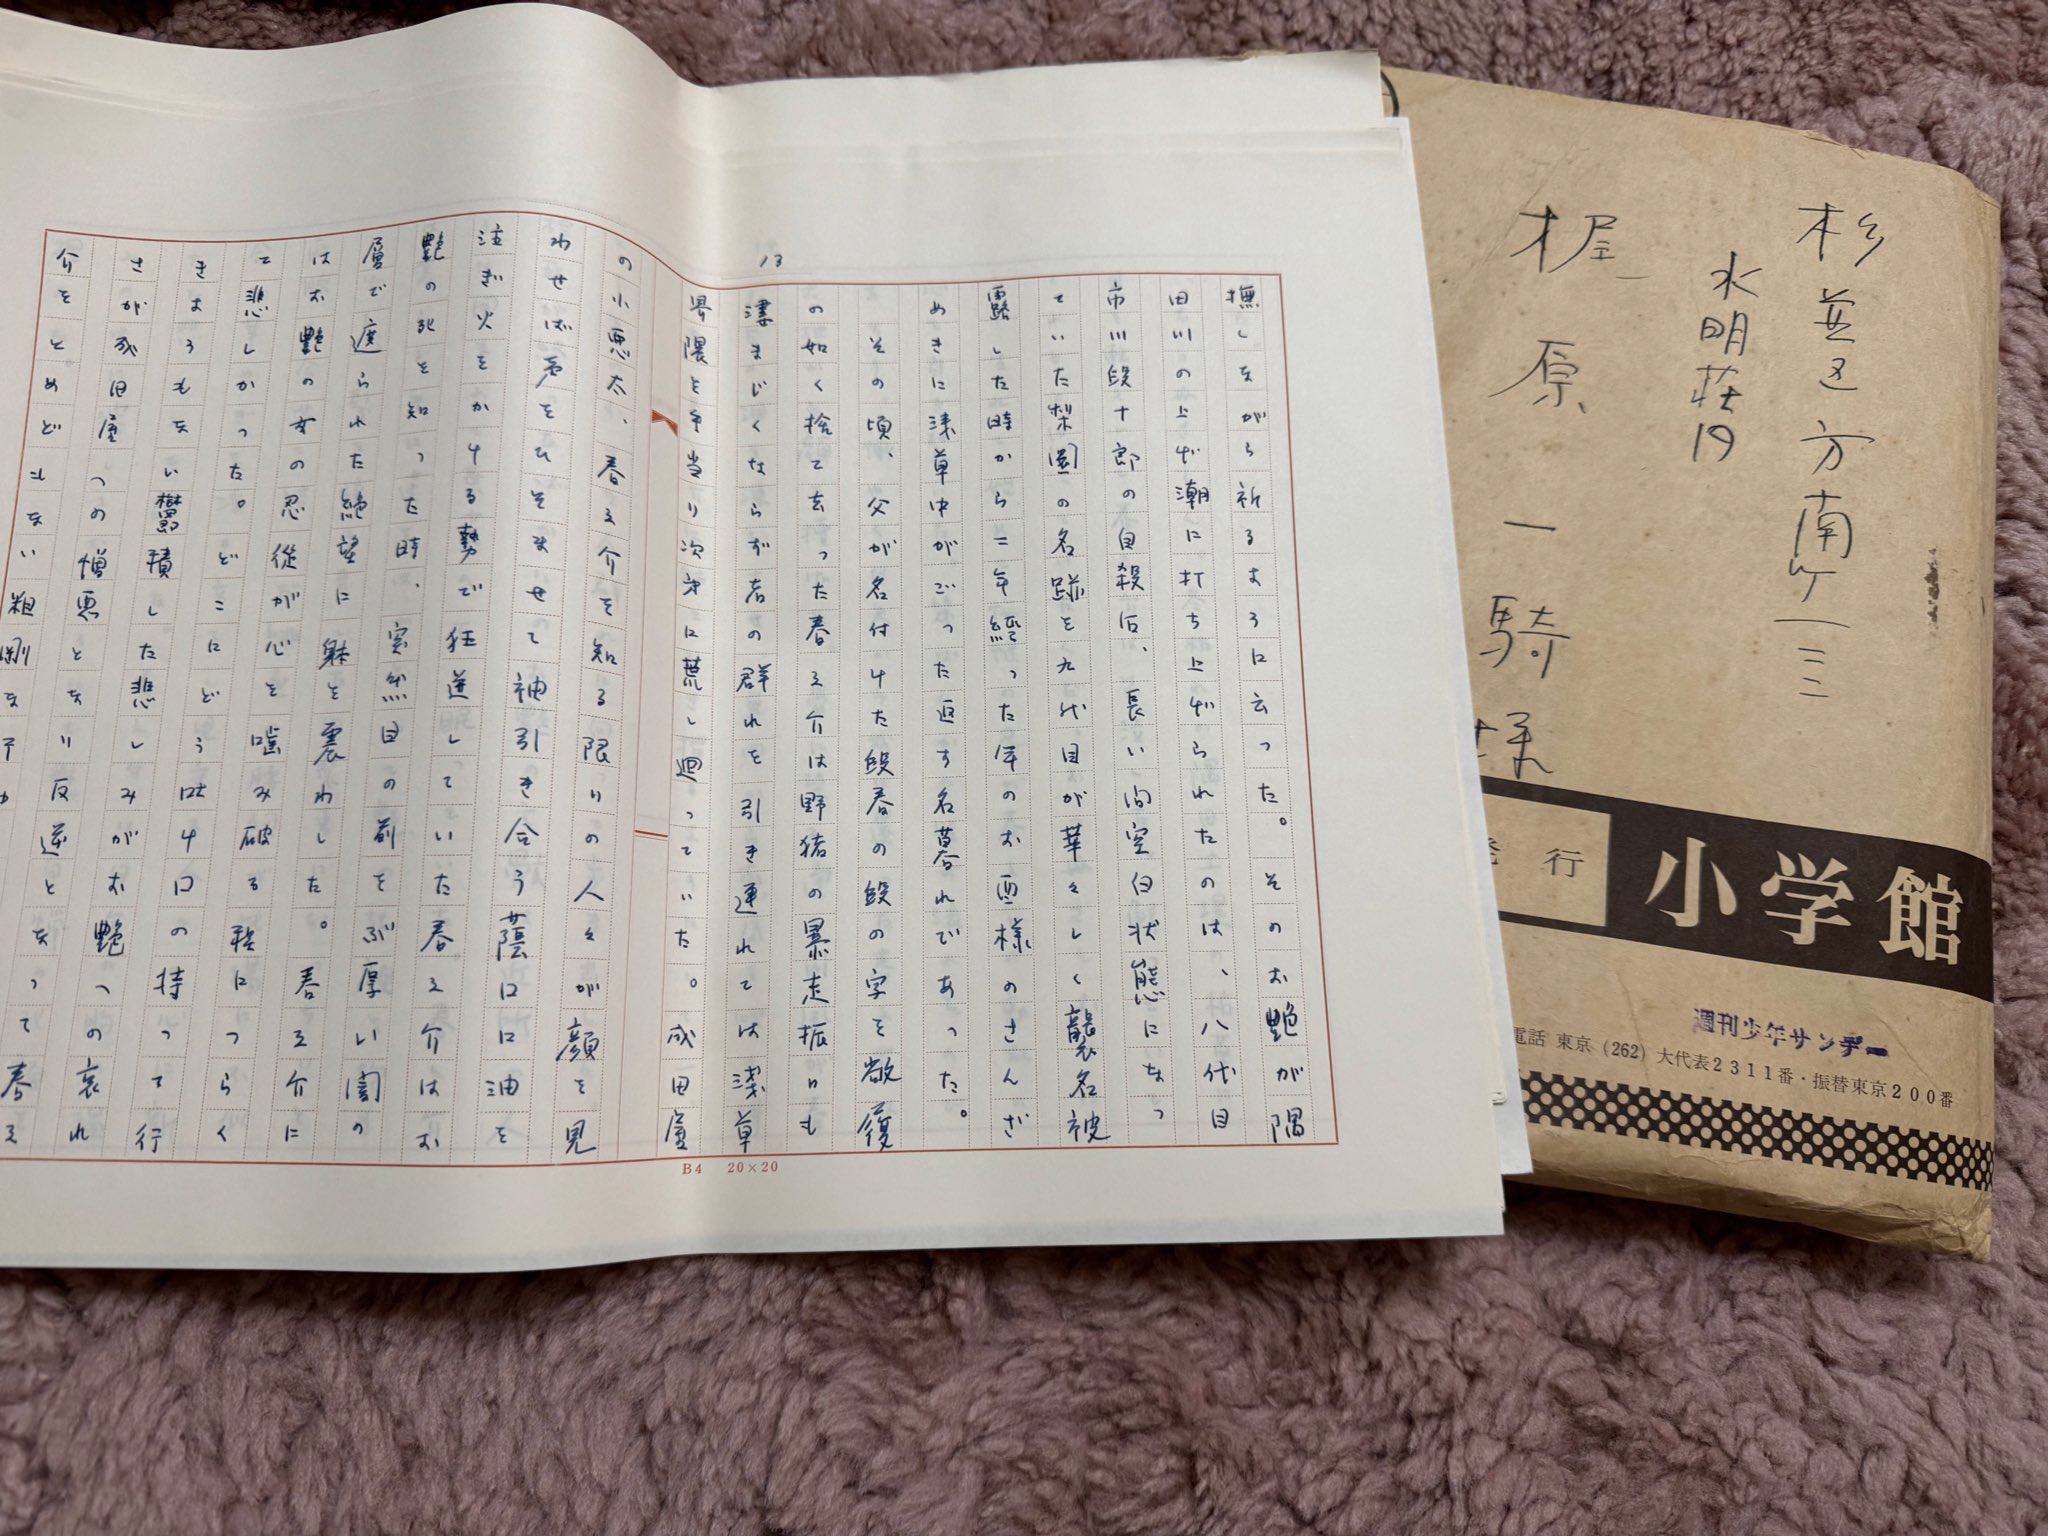 撫しながら祈るように云った。そのお艶が隅
田川の上げ潮に打ち上げられたのは、八代目
市川段十郎の自殺后、長い間空白状態になっ
ていた梨園の名跡を九代目が華々しく襲名被
露した時から二年経った年のお酉様のさんざ
めきに浅草中がごった返す名暮れであった。
その頃、父が名付けた段春の段の字を敝履
の如く捨て去った春之介は野猪の暴走振りも
凄まじくならず者の群れを引き連れては浅草
界隈を手当り次第に荒し廻っていた。成田屋
の小悪太、春之介を知る限りの人々が顔を見
わせば声をひそませて袖引き合う蔭に油を
注ぎ火をかける勢で狂逆していた春之介はお
艶の死を知った時、突然目の前をぶ厚い闇の
層で遮られた絶望に躰を震わした。春之介に
はお艶の女の忍従が心を噛み破る程につらく
て悲しかった。どこにどう吐け口の持って行
きようもない鬱積した悲しみがお艶への哀れ
さが成田屋への憎悪となり反逆となって春之
介をとめどもない粗
13
B4 20×20
杉並区方南町一三三
水明荘内
梶原一騎様
発行 小学館
週刊少年サンデー
電話 東京(262)大代表2311番・振替東京200番